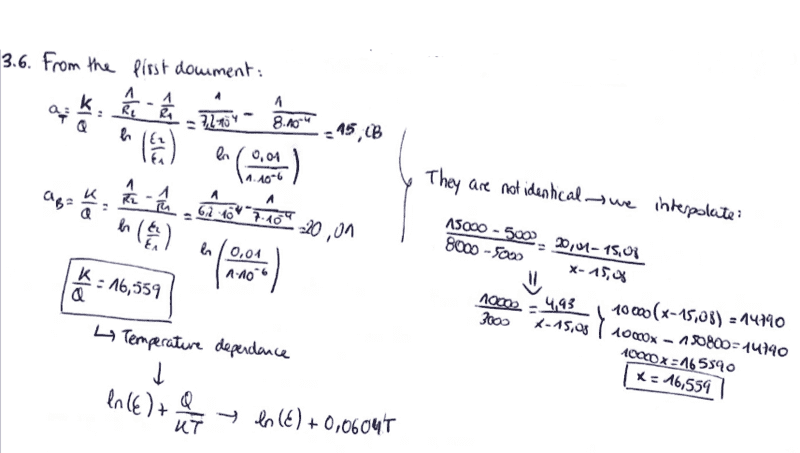 3.6. From the first document:
a_T = K/Q = (1/R2 - 1/R1) / ln(ε2/ε1) = (1/7,2·10^-4 - 1/8·10^-4) / ln(0,01/1·10^-6) = 15,08
a_B = K/Q = (1/R2 - 1/R1) / ln(ε2/ε1) = (1/6,2·10^-4 - 1/7·10^-4) / ln(0,01/1·10^-6) = 20,01
K/Q = 16,559
↳ Temperature dependance
↓
ln(ε) + Q/KT → ln(ε) + 0,0604T
They are not identical → we interpolate:
(15000 - 5000)/(8000 - 5000) = (20,01 - 15,08)/(x - 15,08)
⇓
10000/3000 = 4,93/(x - 15,08)
10000(x - 15,08) = 14790
10000x - 150800 = 14790
10000x = 165590
x = 16,559